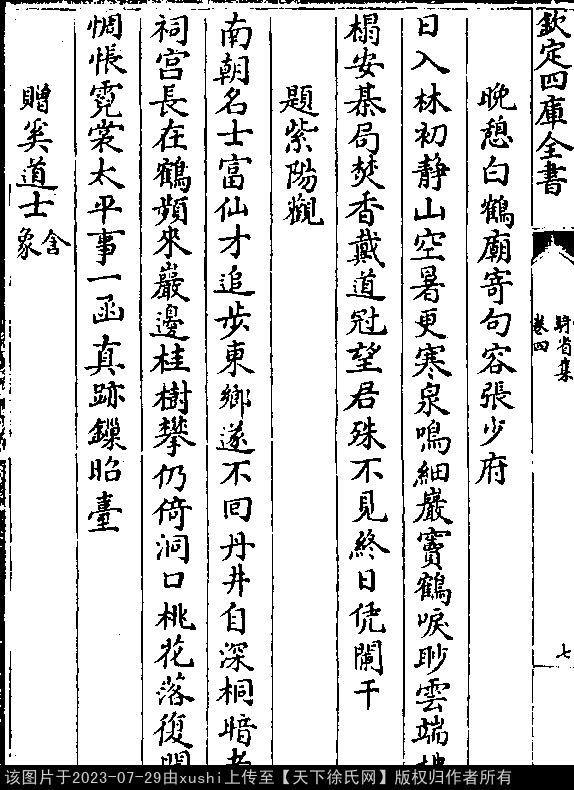 欽定四庫全書
騎省集
卷四
七
晚憩白鶴廟寄句容張少府
日入林初靜山空暑更寒泉鳴細巖竇鶴唳眇雲端
榻安棊局焚香戴道冠望君殊不見終日凭闌干
題紫陽觀
南朝名士富仙才追步東鄉遂不回丹井自深桐暗
祠宫長在鶴頻來巖邊桂樹攀仍倚洞口桃花落復開
惆悵霓裳太平事一函真跡鏁昭臺
贈奚道士含象
该图片于2023-07-29由xushi上传至【天下徐氏网】版权归作者所有